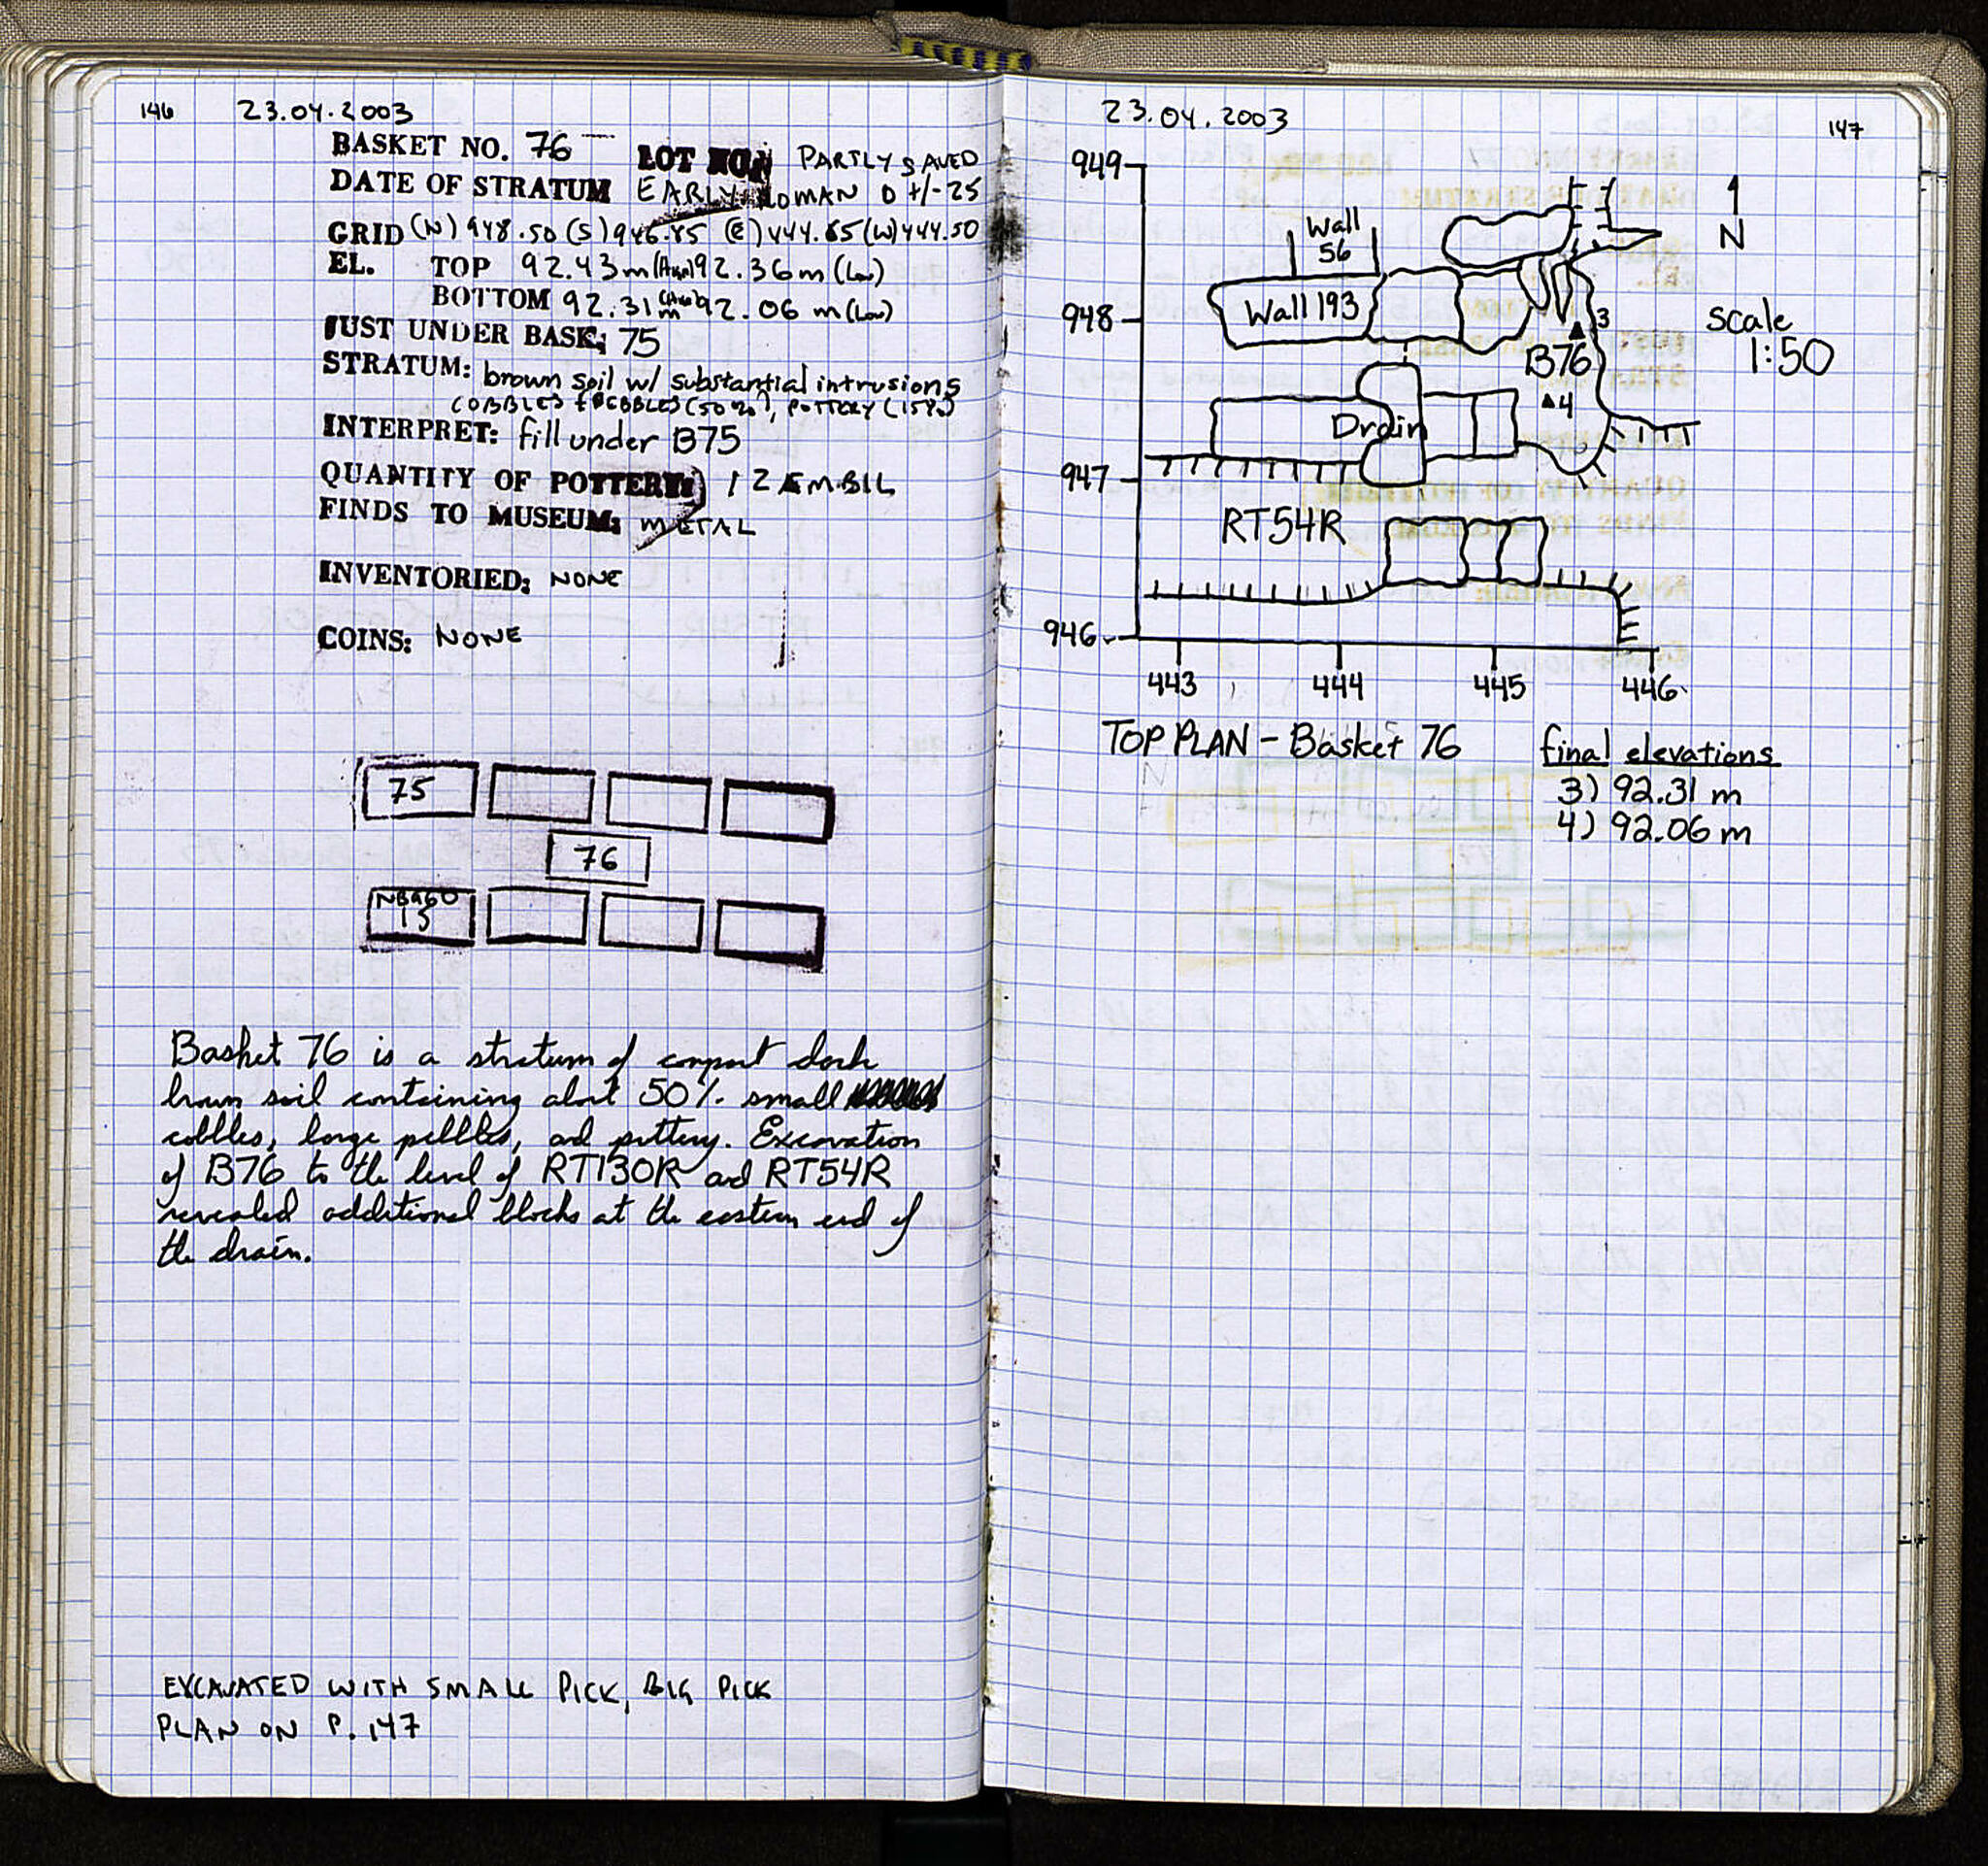 146 23.04.2003
BASKET NO. 76 LOT NO. PARTLY SAVED
DATE OF STRATUM EARLY ROMAN 0 +/-25
GRID (N) 948.50 (S) 946.85 (E) 444.65 (W) 444.50
EL. TOP 92.43m 92.36m (Low)
BOTTOM 92.31m 92.06 m (Low)
JUST UNDER BASK: 75
STRATUM: brown soil w/ substantial intrusions
COBBLES + PEBBLES (50%), POTTERY (15%)
INTERPRET: fill under B75
QUANTITY OF POTTERY: 12
FINDS TO MUSEUM: METAL
INVENTORIED: NONE
COINS: NONE
75
76
NB960
15
Basket 76 is a stratum of compact dark
brown soil containing about 50% small
cobbles, large pebbles, and pottery. Excavation
of B76 to the level of RT130R and RT54R
revealed additional blocks at the eastern end of
the drain.
EXCAVATED WITH SMALL PICK, BIG PICK
PLAN ON P. 147
23.04.2003 147
949
N
Wall
56
948
Wall 193
3
B76
4
scale
1:50
Drain
947
RT54R
946
443 444 445 446
TOP PLAN - Basket 76
final elevations
3) 92.31 m
4) 92.06 m